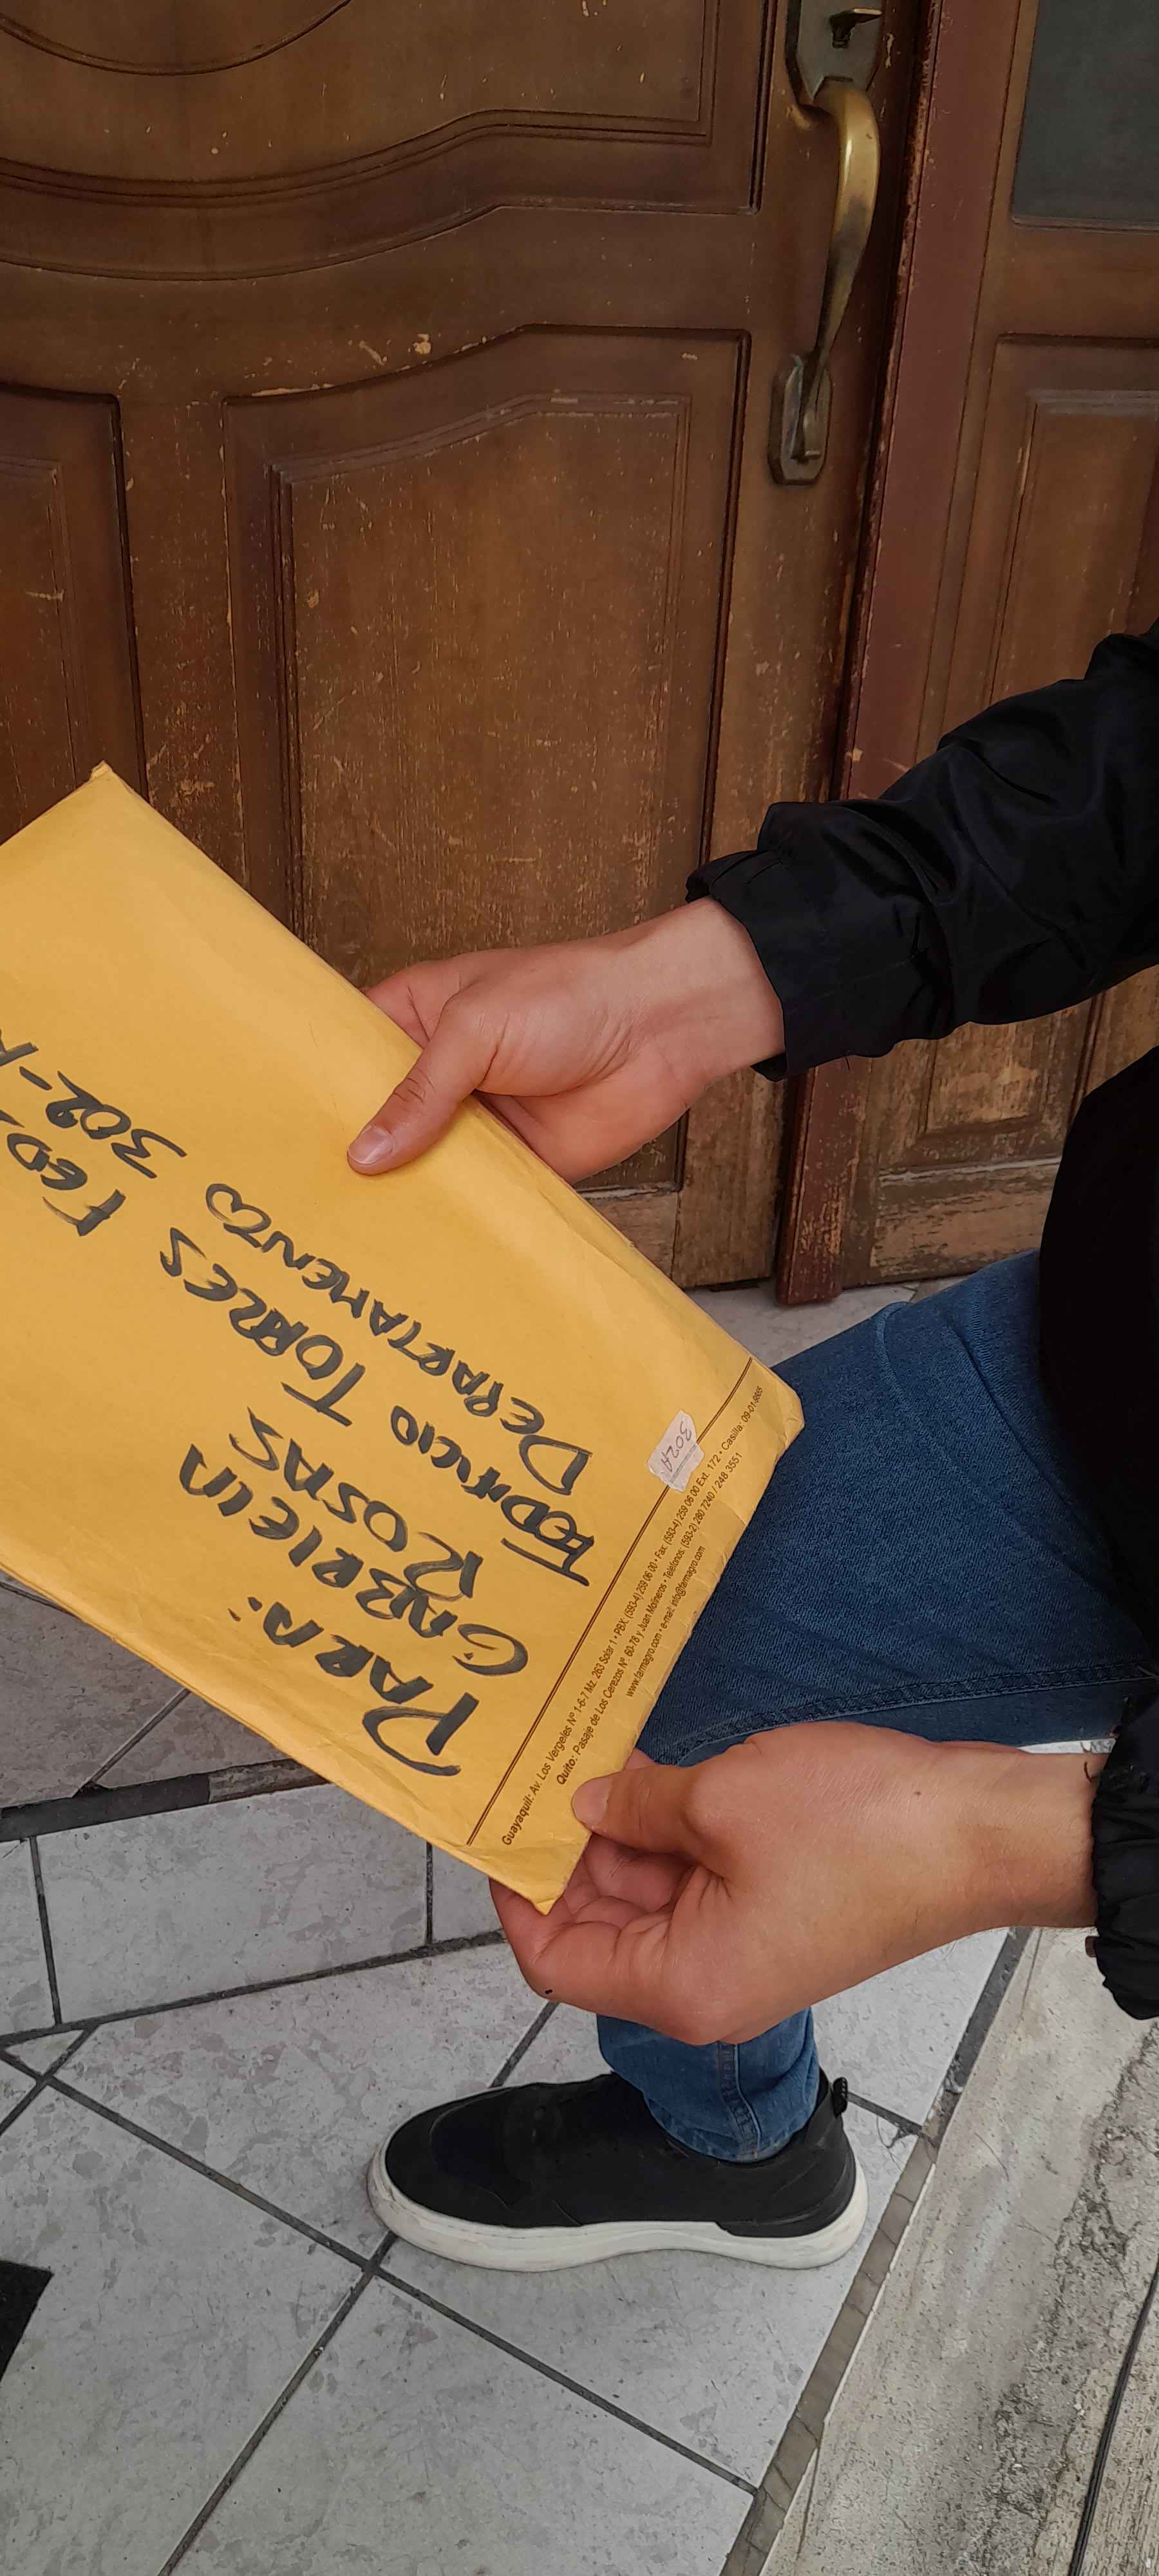 PARA:
GABRIELA
ROSAS
EDIFICIO TORRES
DEPARTAMENTO 302-A
302A
Guayaquil: Av. Los Vergeles Nº 1-6-7 Mz. 263 Solar 1 • PBX: (593-4) 259 06 00 • Fax: (593-4) 259 06 00 Ext. 172 • Casilla: 09-01-9865
Quito: Pasaje de Los Cerezos Nº 60-78 y Juan Molineros • Teléfonos: (593-2) 280 7240 / 248 3551
www.farmagro.com • e-mail: info@farmagro.com